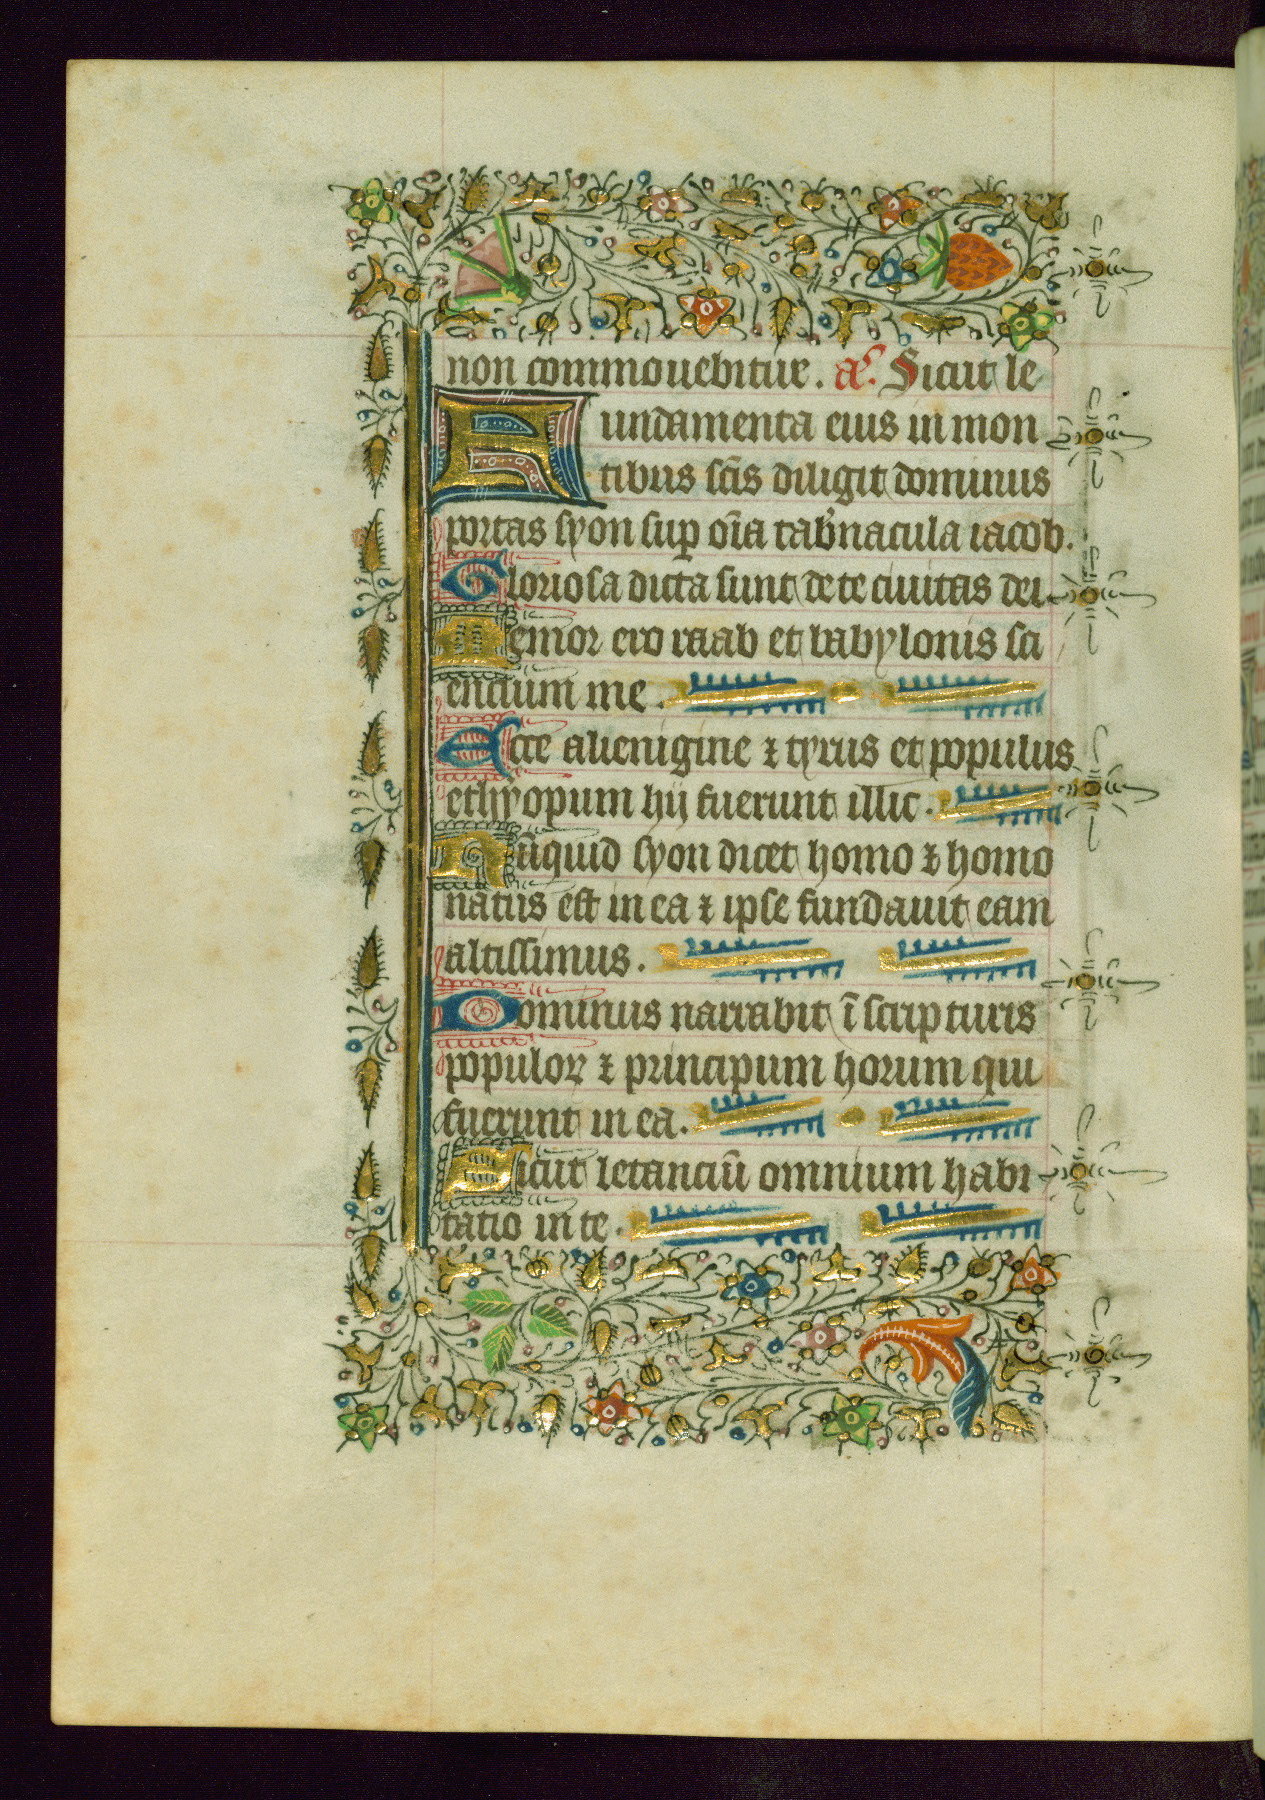 non commouebitur. añ. Sicut le
Fundamenta eius in mon
tibus sc̄is diligit dominus
portas syon sup̱ om̄ia tab̓nacula iacob.
Gloriosa dicta sunt de te ciuitas dei.
Memor ero raab et babylonis sci
encium me.
Ecce alienigine ⁊ tyrus et populus
ethyopum hij fuerunt illic.
Nūquid syon dicet homo ⁊ homo
natus est in ea ⁊ ipse fundauit eam
altissimus.
Dominus narrabit ī scripturis
populoꝝ ⁊ principum horum qui
fuerunt in ea.
Sicut letanciū omnium habi
tatio in te.